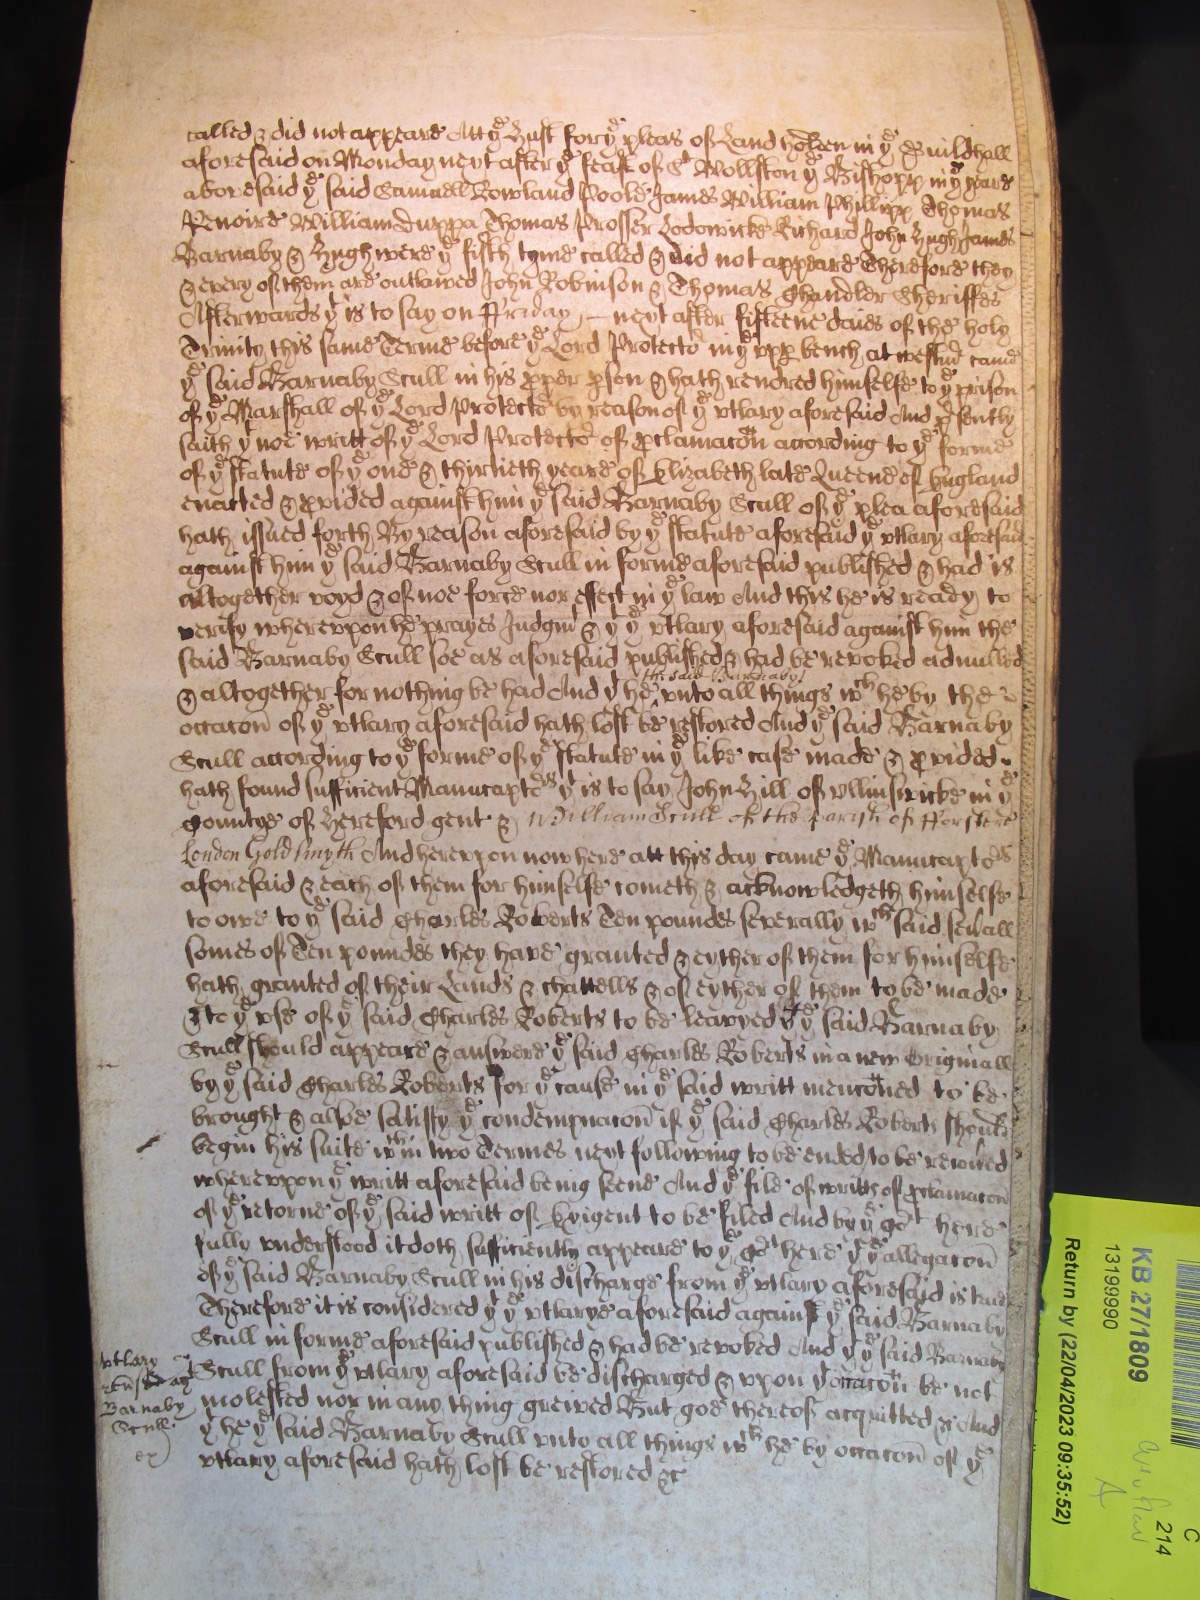 called & did not appeare Att ye Hust for ye pleas of Land holden in ye Guildhall
aforesaid on Monday next after ye feast of St Wollston ye Bishopp in ye yeare
aboresaid ye said Samuell Rowland Poole James William Phillipp Thomas
Penoire William Duppa Thomas Prosser Lodowicke Richard John Hugh James
Barnaby & Hugh were ye fifth tyme called & did not appeare Therefore they
& every of them are outlawed John Robinson & Thomas Chandler Sheriffes
Afterwards yt is to say on Ffriday next after fifteene daies of the holy
Trinity this same Terme before ye Lord Protector in ye upp bench at westmr came
ye said Barnaby Scull in his pper pson & hath rendred himselfe to ye prison
of ye Marshall of ye Lord Protector by reason of ye utlary aforesaid And psently
saith yt noe writt of ye Lord Protector of pclamacon according to ye forme
of ye statute of ye one & thirtieth yeare of Elizabeth late Queene of England
enacted & pvided against him ye said Barnaby Scull of ye plea aforesaid
hath issued forth By reason aforesaid by ye statute aforesaid ye utlary aforesaid
against him ye said Barnaby Scull in forme aforesaid published & had is
altogether voyd & of noe force nor effect in ye law And this he is ready to
verify whereupon he prayes Judgmt & yt ye utlary aforesaid against him the
said Barnaby Scull soe as aforesaid published & had be revoked adnulled
the said Barnaby
& altogether for nothing be had And yt he unto all things wch he by the
occacon of ye utlary aforesaid hath lost be restored And ye said Barnaby
Scull according to ye forme of ye statute in ye like case made & pvided
hath found sufficient Manucaptors yt is to say John Hill of Ullinswicke in ye
Countye of Hereford gent & William Scull of the parish of
London Goldsmyth And hereupon now here att this day came ye Manucaptors
aforesaid & each of them for himselfe cometh & acknowledgeth himselfe
to owe to ye said Charles Roberts Ten poundes severally wch said sevall
somes of Ten poundes they have granted & eyther of them for himselfe
hath granted of their Lands & chattells & of eyther of them to be made
& to ye use of ye said Charles Roberts to be leavyed yt ye said Barnaby
Scull should appeare & answere ye said Charles Roberts in a new Originall
by ye said Charles Roberts for ye cause in ye said writt menconed to be
brought & alsoe satisfy ye condempnacon if ye said Charles Roberts should
begin his suite wthin two Termes next following to be ended to be renewed
whereupon ye writt aforesaid being seene And ye file of writts of pclamacon
of ye retorne of ye said writt of Exigent to be filed And by ye Cort here
fully understood it doth sufficiently appeare to ye Cort here yt ye allegacon
of ye said Barnaby Scull in his discharge from ye utlary aforesaid is true
Therefore it is considered yt ye utlarye aforesaid against ye said Barnaby
Scull in forme aforesaid published & had be revoked And yt ye said Barnaby
Scull from ye utlary aforesaid be discharged & upon yt occacon be not
molested nor in any thing greived But goe thereof acquitted & And
yt he ye said Barnaby Scull unto all things wch he by occacon of ye
utlary aforesaid hath lost be restored &c
utlary
Barnaby
Scull
KB 27/1809
13199990
Return by (22/04/2023 09:35:52)
C
214
A